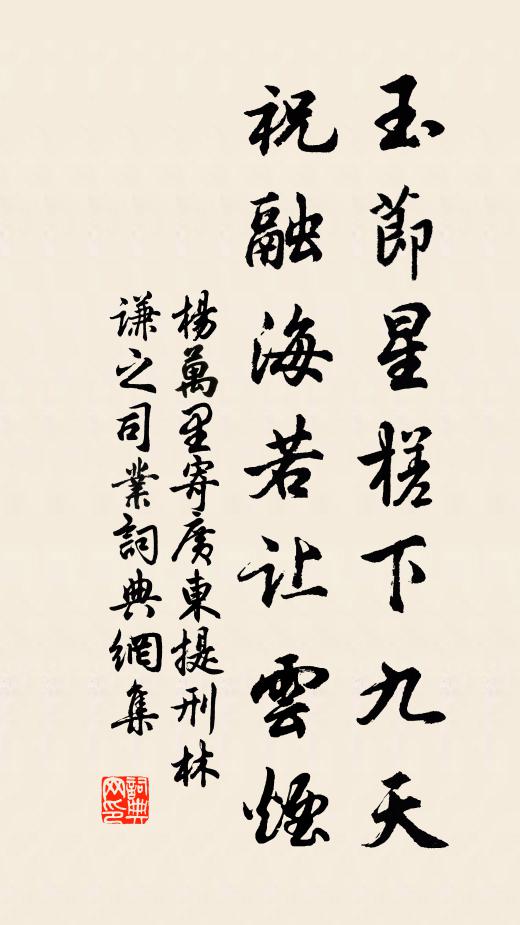 玉節星槎下九天
祝融海若让雲煙
楊萬里寄廣東提刑林
謙之司業詞典網集
詞典网印